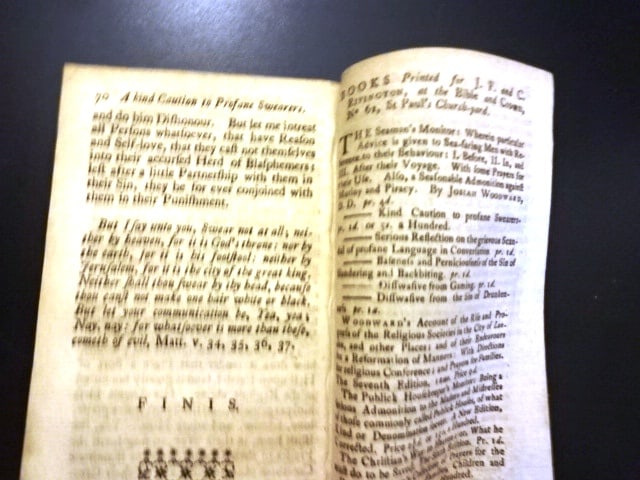 70 A kind Caution to Profane Swearers.
and do him Dishonour. But let me intreat
all Persons whatsoever, that have Reason
and Self-love, that they cast not themselves
into their accursed Herd of Blasphemers;
lest after a little Partnership with them in
their Sin, they be for ever conjoined with
them in their Punishment.
But I say unto you, Swear not at all; nei-
ther by heaven, for it is God's throne: nor by
the earth, for it is his footstool: neither by
Jerusalem, for it is the city of the great king.
Neither shalt thou swear by thy head, because
thou canst not make one hair white or black.
But let your communication be, Yea, yea;
Nay, nay: for whatsoever is more than these,
cometh of evil, Matt. v. 34, 35, 36, 37.
FINIS.
BOOKS Printed for J. F. and C.
RIVINGTON, at the Bible and Crown,
No 62, St. Paul's Church-yard.
THE Seaman's Monitor: Wherein particular
Advice is given to Sea-faring Men with Re-
to their Behaviour: I. Before, II. in, and
III. After their Voyage. With some Prayers for
their Use. Also, a Seasonable Admonition against
Mutiny and Piracy. By JOSIAH WOODWARD,
D. D. pr. 4d.
Kind Caution to profane Swearers.
pr. 1d. or 5s. a Hundred.
Serious Reflection on the grievous Scan-
dal of profane Language in Conversation. pr. 1d.
Baseness and Perniciousness of the Sin of
Slandering and Backbiting. pr. 1d.
Disswasive from Gaming. pr. 1d.
Disswasive from the Sin of Drunken-
ness. pr. 1d.
WOODWARD's Account of the Rise and Pro-
gress of the Religious Societies in the City of Lon-
don, and other Places; and of their Endeavours
for a Reformation of Manners. With Directions
for religious Conference; and Prayers for Families.
The Seventh Edition.
The Publick Housekeeper's Monitor: Being a
serious Admonition to the Masters and Mistresses
of those commonly called Publick Houses, of what
Kind or Denomination soever. A New Edition,
Corrected. Price
The Christian's Way What he
do to be Pr. 1d.
Prayers for the
Children and
Hundred.